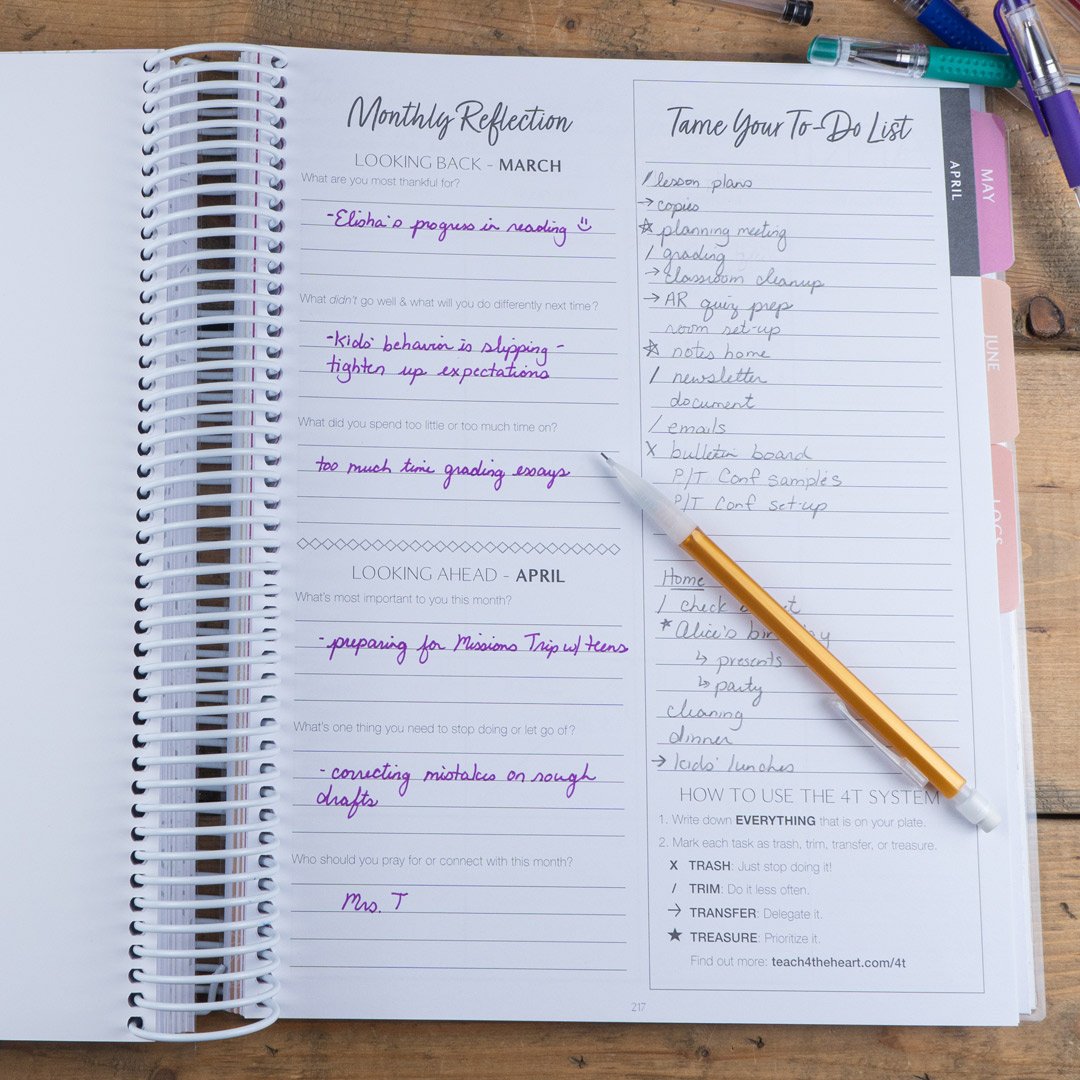 Monthly Reflection
LOOKING BACK - MARCH
What are you most thankful for?
-Elisha's progress in reading
What didn't go well & what will you do differently next time?
-kids' behavior is slipping -
tighten up expectations
What did you spend too little or too much time on?
too much time grading essays
LOOKING AHEAD - APRIL
What's most important to you this month?
-preparing for Missions Trip w/ teens
What's one thing you need to stop doing or let go of?
-correcting mistakes on rough
drafts
Who should you pray for or connect with this month?
Mrs. T
217
Tame Your To-Do List
/ lesson plans
→ copies
☆ planning meeting
/ grading
→ classroom cleanup
→ AR quiz prep
room set-up
☆ notes home
/ newsletter
document
/ emails
X bulletin board
P/T Conf samples
P/T Conf set-up
Home
/ check
★ Alice's
↳ presents
↳ party
cleaning
dinner
→ kids' lunches
HOW TO USE THE 4T SYSTEM
1. Write down EVERYTHING that is on your plate.
2. Mark each task as trash, trim, transfer, or treasure.
X TRASH: Just stop doing it!
/ TRIM: Do it less often.
→ TRANSFER: Delegate it.
★ TREASURE: Prioritize it.
Find out more: teach4theheart.com/4t
APRIL
MAY
JUNE
LOGS